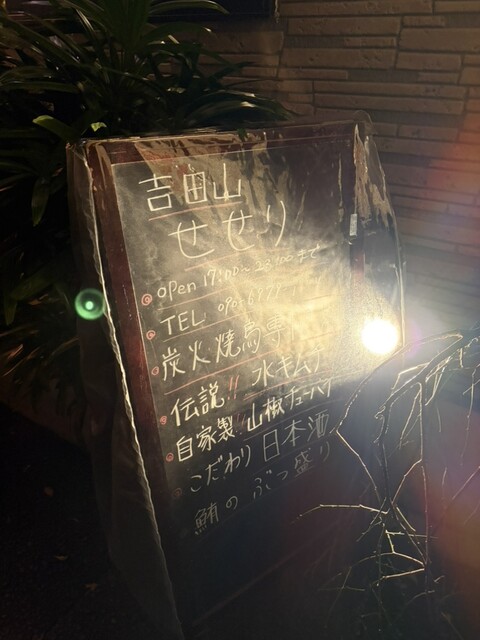 吉田山
せせり
open 17:00~23:00まで
TEL 090
炭火焼鳥専
伝説!! 水キムチ
自家製!! 山椒チューハイ
こだわり日本酒
鮪のぶつ盛り